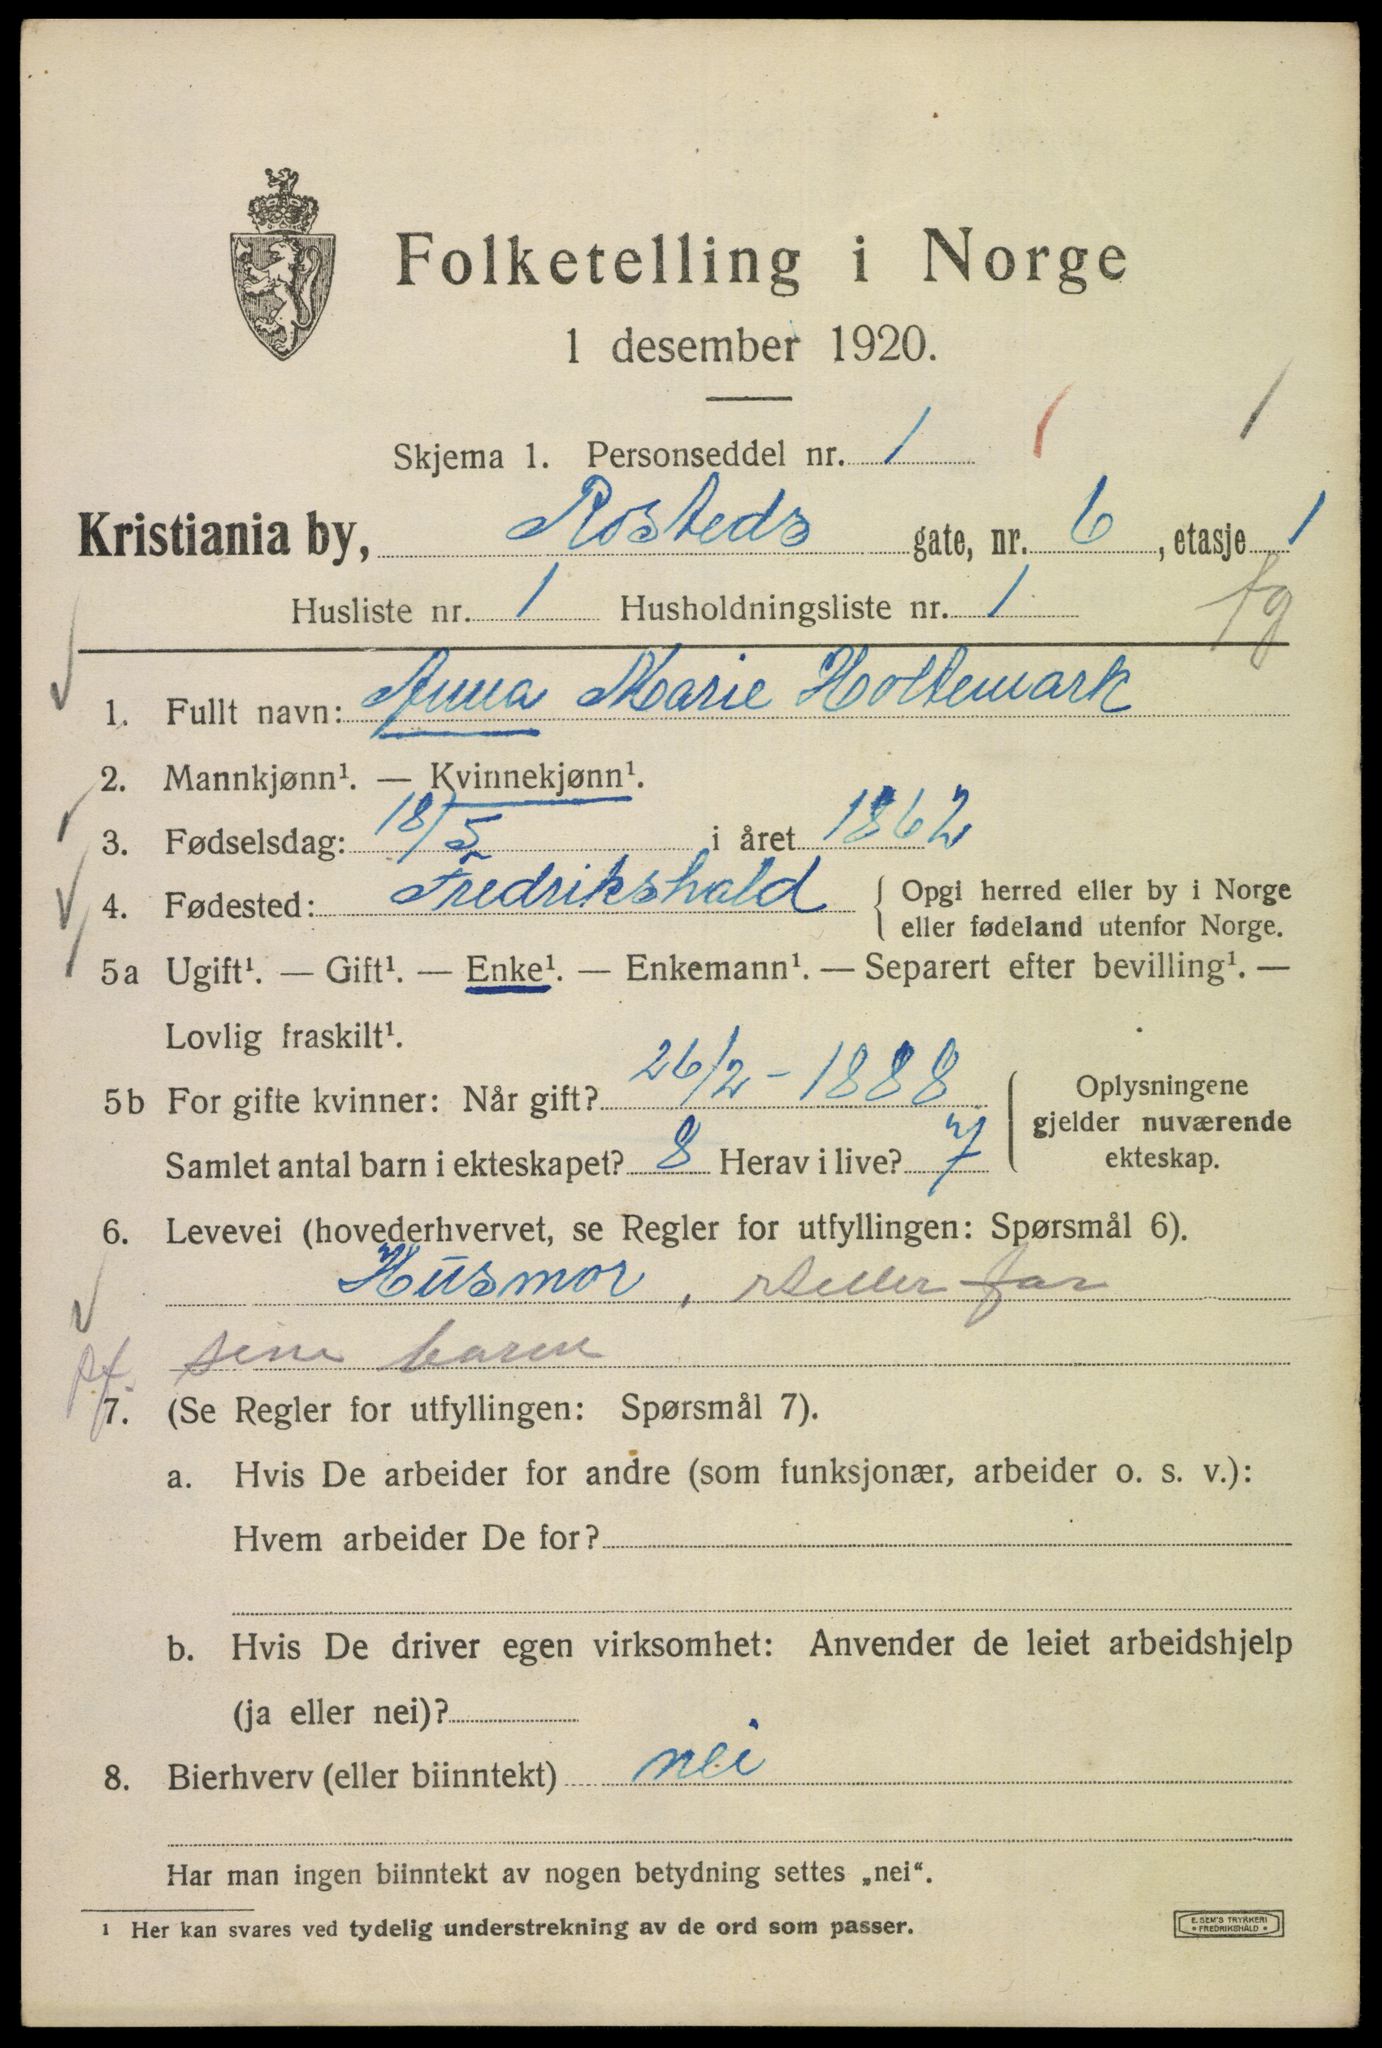 Folketelling i Norge
1 desember 1920.
Skjema 1. Personseddel nr. 1 1 1
Kristiania by, Rosteds gate, nr. 6, etasje 1
Husliste nr. 1 Husholdningsliste nr. 1 fg
1. Fullt navn: Anna Marie Holtemark
2. Mannkjønn¹. — Kvinnekjønn¹.
3. Fødselsdag: 18/5 i året 1862
4. Fødested: Fredrikshald { Opgi herred eller by i Norge
eller fødeland utenfor Norge.
5a Ugift¹. — Gift¹. — Enke¹. — Enkemann¹. — Separert efter bevilling¹. —
Lovlig fraskilt¹.
5b For gifte kvinner: Når gift? 26/2 - 1888
Samlet antal barn i ekteskapet? 8 Herav i live? 7
Oplysningene
gjelder nuværende
ekteskap.
6. Levevei (hovederhvervet, se Regler for utfyllingen: Spørsmål 6).
Husmor, steller for
sine barn
7. (Se Regler for utfyllingen: Spørsmål 7).
a. Hvis De arbeider for andre (som funksjonær, arbeider o. s. v.):
Hvem arbeider De for?
b. Hvis De driver egen virksomhet: Anvender de leiet arbeidshjelp
(ja eller nei)?
8. Bierhverv (eller biinntekt) nei
Har man ingen biinntekt av nogen betydning settes „nei“.
¹ Her kan svares ved tydelig understrekning av de ord som passer.
E. SEM'S TRYKKERI
• FREDRIKSHALD •